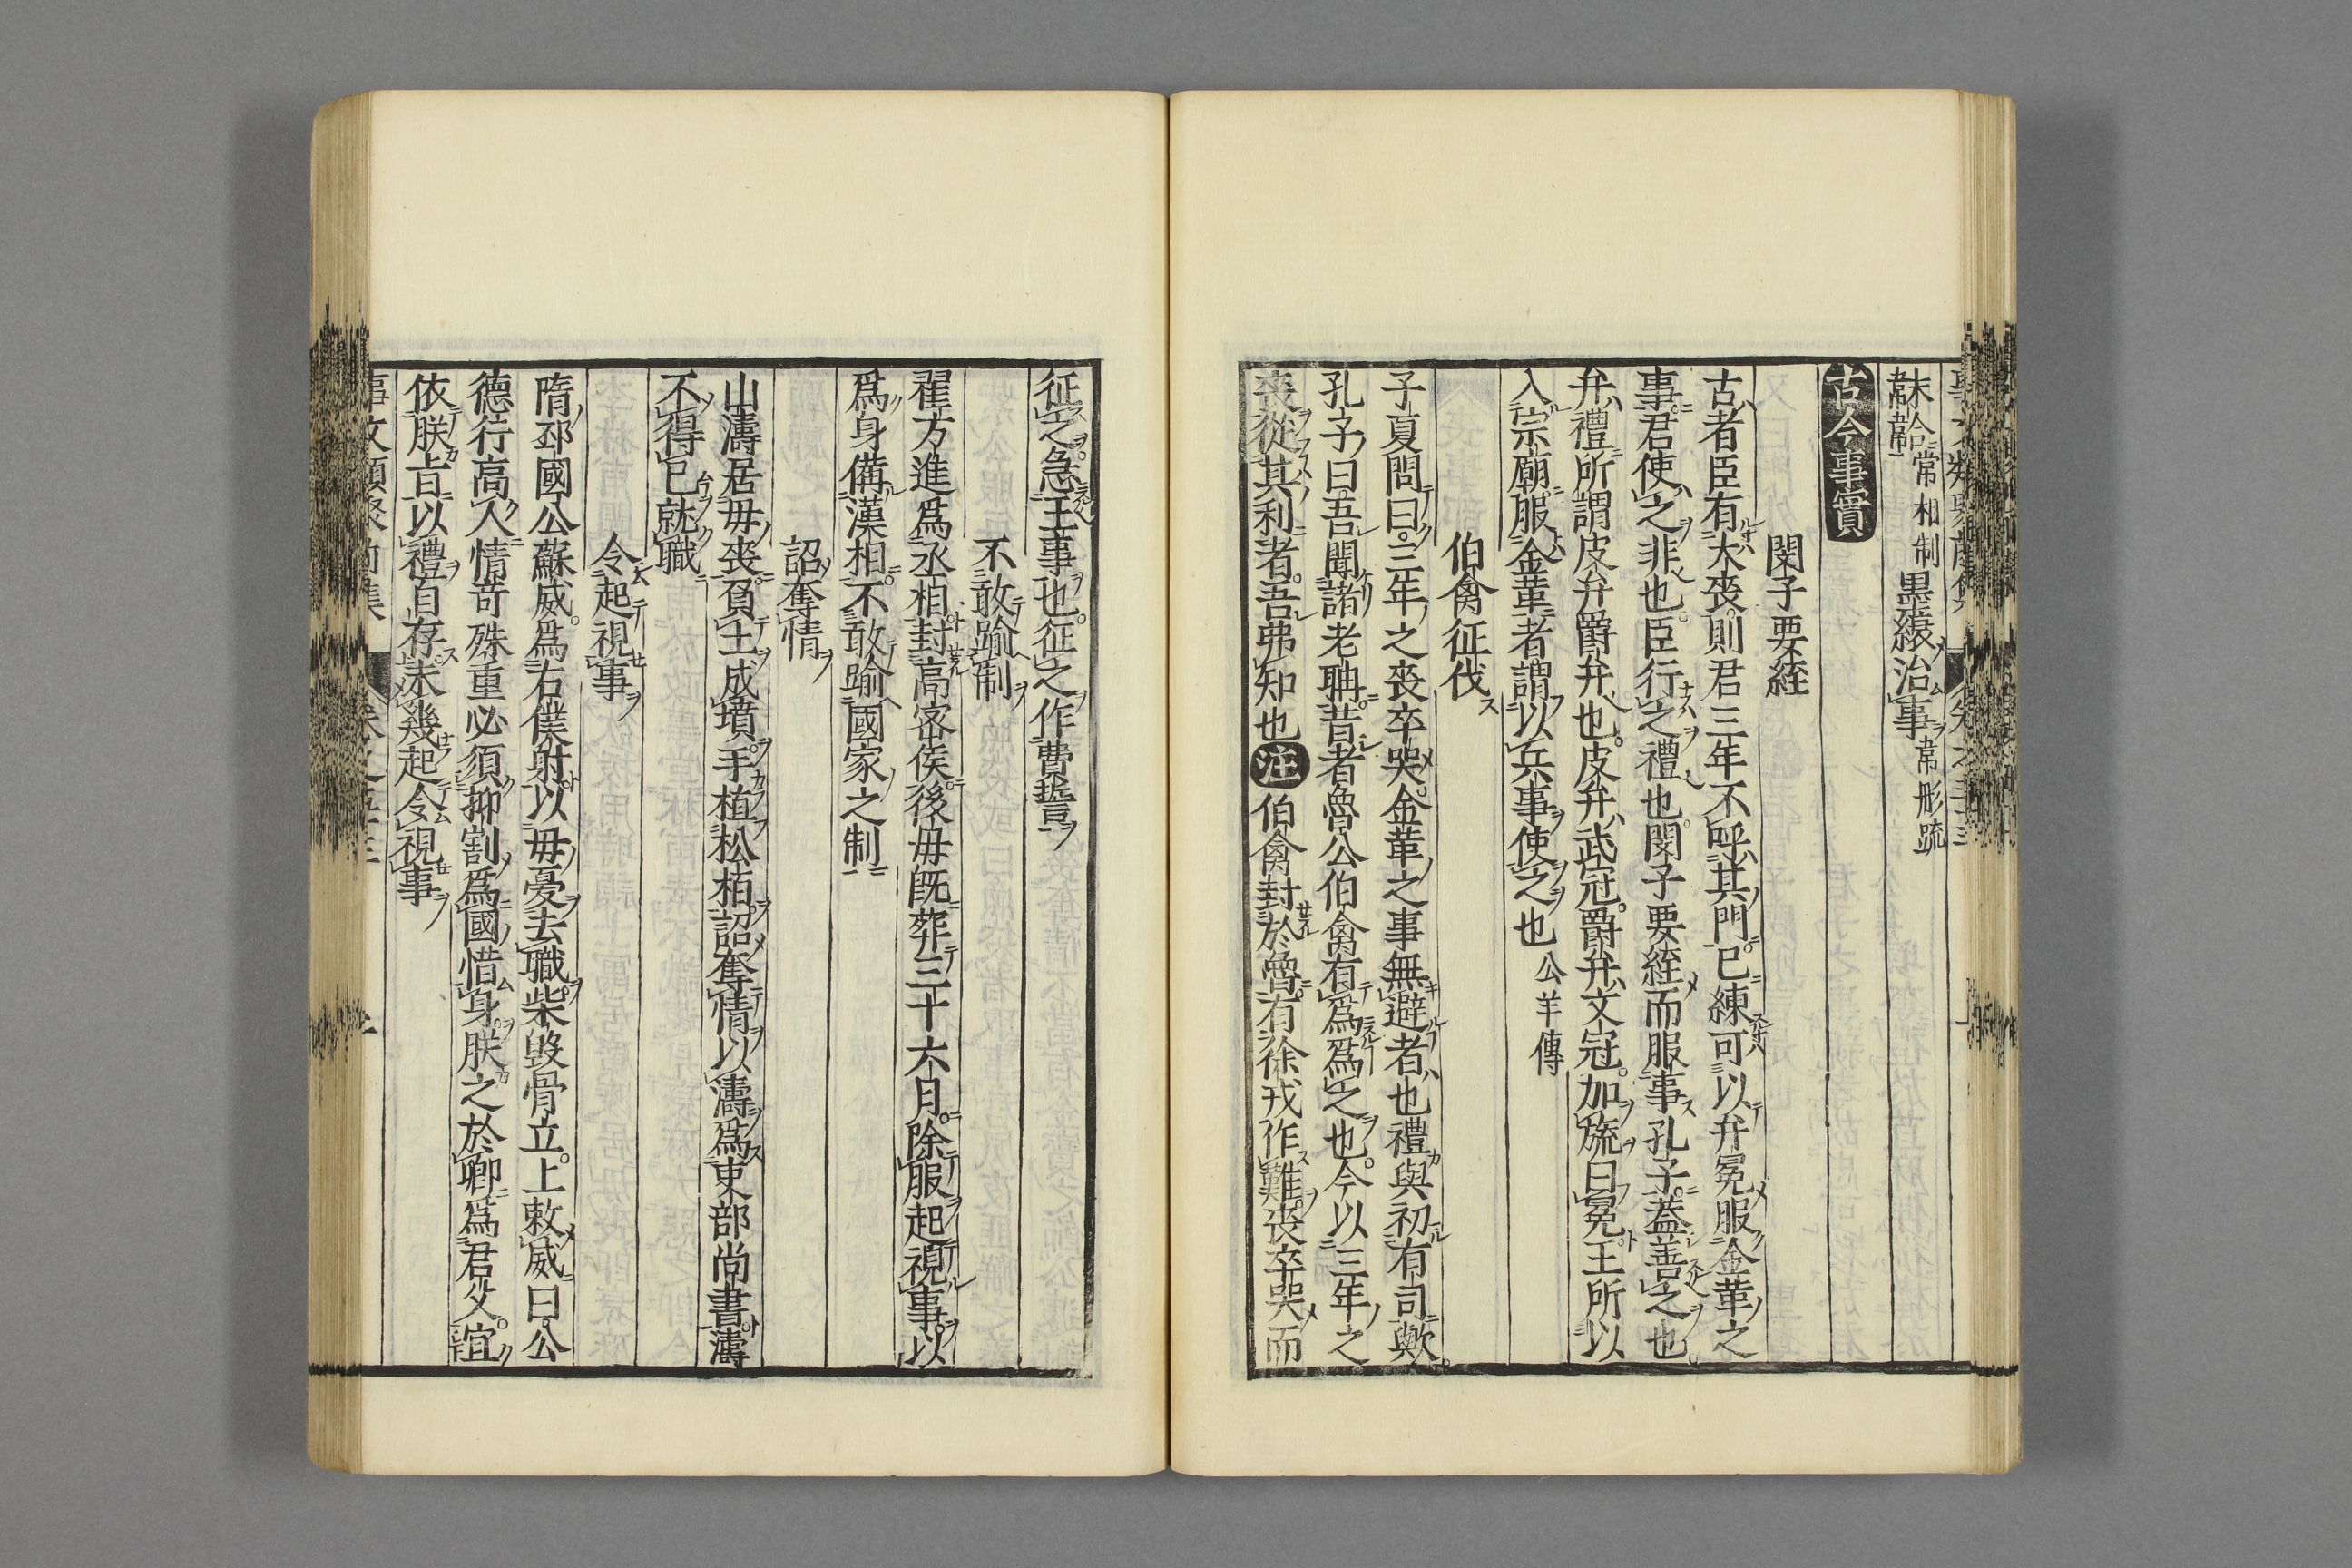 韎韐常相制墨縗治事常彤䟽
古今事實
閔子要絰
古者臣有大喪則君三年不呼其門已練可以弁冕服金革之
事君使之非也臣行之禮也閔子要絰而服事孔子蓋善之也
弁禮所謂皮弁爵弁也皮弁武冠爵弁文冠加旒曰冕王所以
入宗廟服金革者謂以兵事使之也公羊傳
伯禽征伐
子夏問曰三年之喪卒哭金革之事無避者也禮與初有司歟
孔子曰吾聞諸老聃昔者魯公伯禽有爲爲之也今以三年之
喪從其利者吾弗知也注伯禽封於魯有徐戎作難喪卒哭而
征之急王事也征之作費誓
不敢踰制
翟方進爲丞相封高宻侯後毋既葬三十六月除服起視事以
爲身備漢相不敢踰國家之制
詔奪情
山濤居毋喪負土成墳手植松栢詔奪情以濤爲吏部尚書濤
不得已就職
令起視事
隋邳國公蘇威爲右僕射以毋憂去職柴毀骨立上敕威曰公
德行高人情竒殊重必須抑割爲國惜身朕之於卿爲君父宜
依朕旨以禮自存未幾起令視事